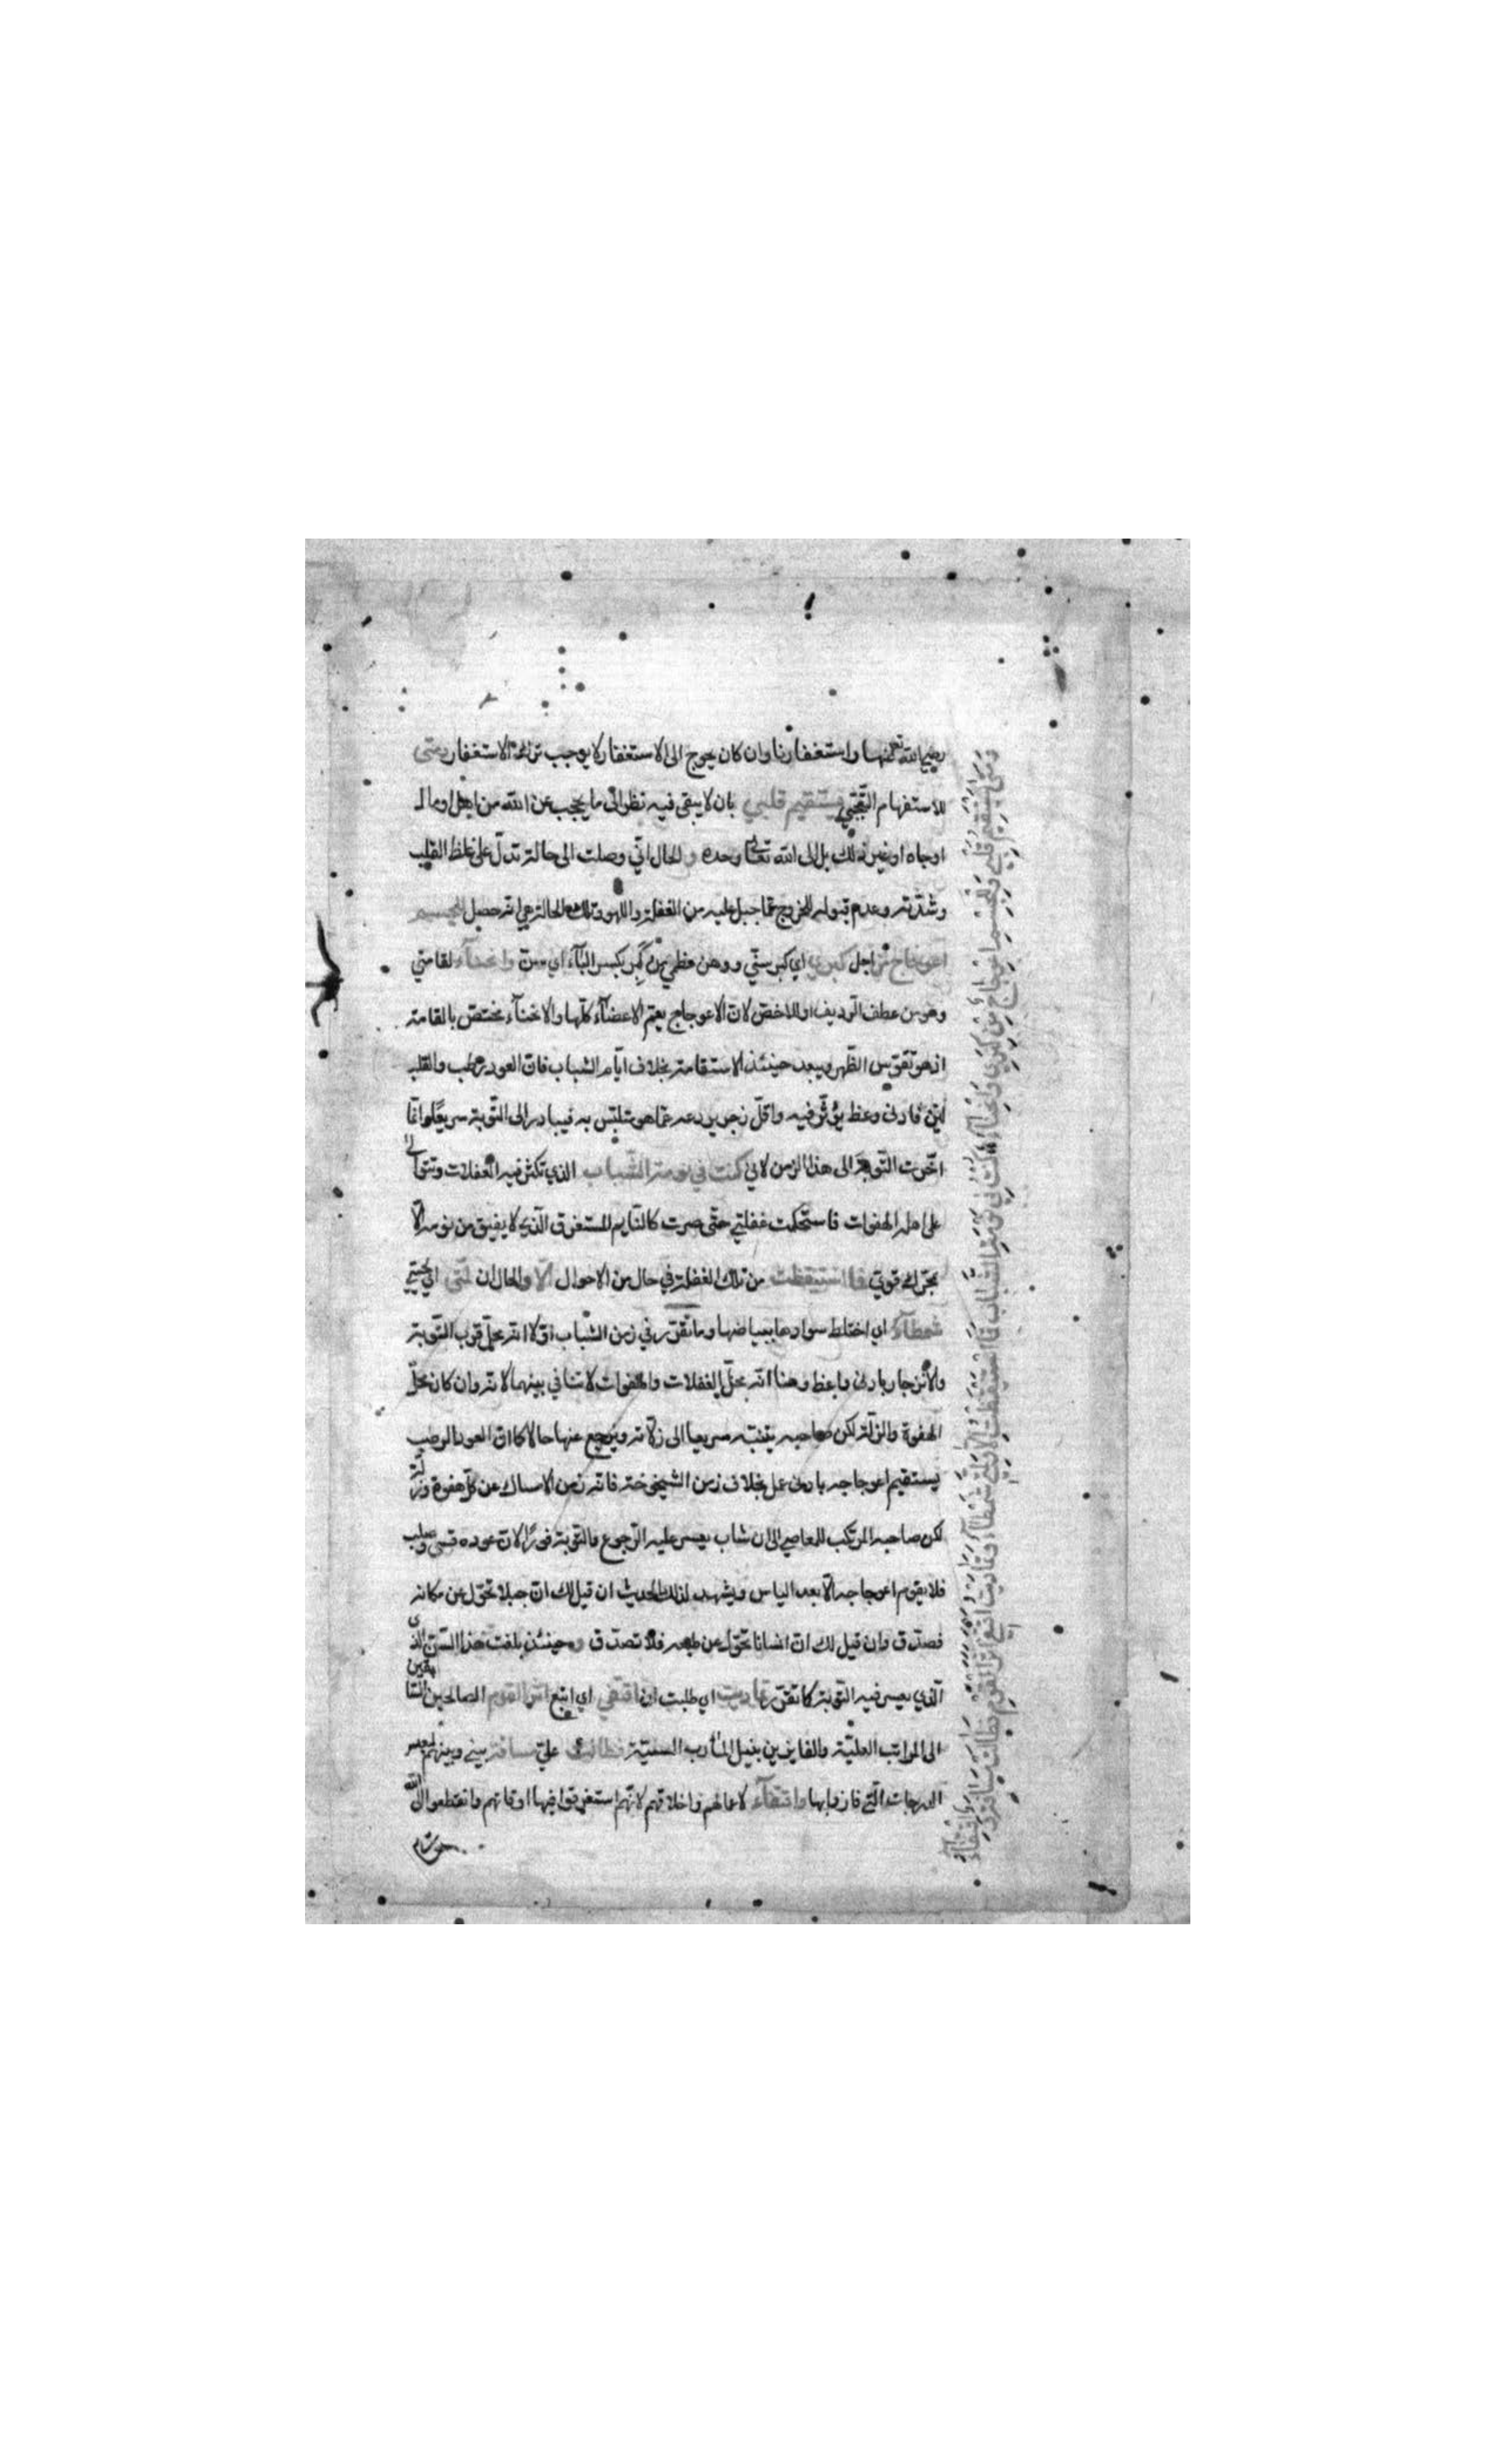 رضي الله تعالى عنها واستغفارنا وان كان يحوج الى الاستغفار لا يوجب ترك الاستغفار ومتى
للاستفهام التعجبي يستقيم قلبي بان لا يبقى فيه نظر الى ما يحجب عن الله من اهل او مال
او جاه او غير ذلك بل الى الله تعالى وحده و الحال اني وصلت الى حالة تدل على غلظ القلب
وشدته وعدم قبوله للخروج عما جبل عليه من الغفلة واللهو وتلك الحالة هي انه حصل للجسم
اعوجاج من اجل كبرتي اي كبر سني ووهن عظمي من كبر بكسر البآء اي اسن وانحنآء لقامتي
وهو من عطف الرديف او للاخص لان الاعوجاج يعم الاعضآء كلها والانحنآء مختص بالقامة
اذ هو تقوس الظهر ويبعد حينئذ الاستقامة بخلاف ايام الشباب فان العود رطب والقلب
لين فادنى وعظ يؤثر فيه واقل زجر يردعه عما هو متلبس به فيبادر الى التوبة سريعا وانما
اخرت التوبة الى هذا الزمن لاني كنت في نومة الشباب الذي تكثر فيه الغفلات وتتوالى
على اهله الهفوات فاستحكمت غفلتي حتى صرت كالنايم المستغرق الذي لا يفيق من نومه الا
بمحرك قوي فما استيقظت من تلك الغفلة في حال من الاحوال الا والحال ان لمتي اي لحيتي
شمطآء اي اختلط سوادها ببياضها وما تقرر في زمن الشباب اولا انه محل قرب التوبة
والانزجار بادنى واعظ وهنا انه محل الغفلات والهفوات لا تنافي بينهما لانه وان كان محل
الهفوة والزلة لكن صاحبه يتنبه سريعا الى زلاته ويرجع عنها حالا كما ان العود الرطب
يستقيم اعوجاجه بادنى عمل بخلاف زمن الشيخوخة فانه زمن الامساك عن كل هفوة وزلة
لكن صاحبه المرتكب للمعاصي الى ان شاب يعسر عليه الرجوع والتوبة فورا لان عوده قسي وصلب
فلا يقوم اعوجاجه الا بعد الياس ويشهد لذلك الحديث ان قيل لك ان جبلا تحول عن مكانه
فصدق وان قيل لك ان انسانا تحول عن طبعه فلا تصدق و حينئذ بلغت هذا السن الذي
الذي يعسر فيه التوبة كما تقرر تماديت اي طلبت ان اقتفي اي اتبع اثر القوم الصالحين السابقين
الى المراتب العلية والفايزين بنيل المأرب السنية فطالت علي مسافة بيني وبينهم لبعد
الدرجات التي فازوا بها واقتفآء لاعمالهم واخلاقهم لانهم استغرقوا فيها اوقاتهم وانقطعوا الى الله
ومتى يستقيم قلبي وللجسم اعوجاج من كبرتي وانحنآء كنت في نومة الشباب فما استيقظت الا ولمتي شمطآء وتماديت اقتفي اثر القوم فطالت مسافة واقتفآء